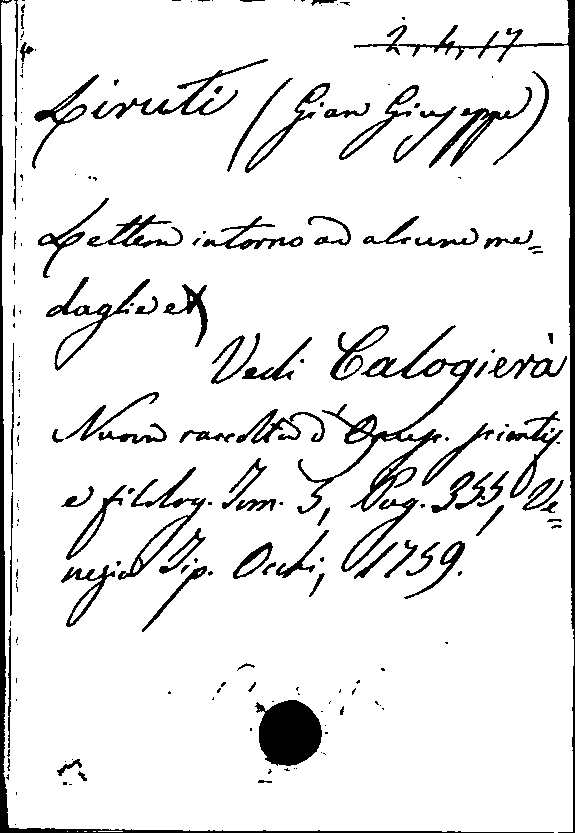 2, 4, 17
Liruti (Gian Giuseppe)
Lettera intorno ad alcune me=
daglie
Vedi Calogierà
Nuova raccolta d'Opusc. scientif.
e filolog. Tom. 5, Pag. 355, Ve=
nezia Tip. Occhi, 1759.